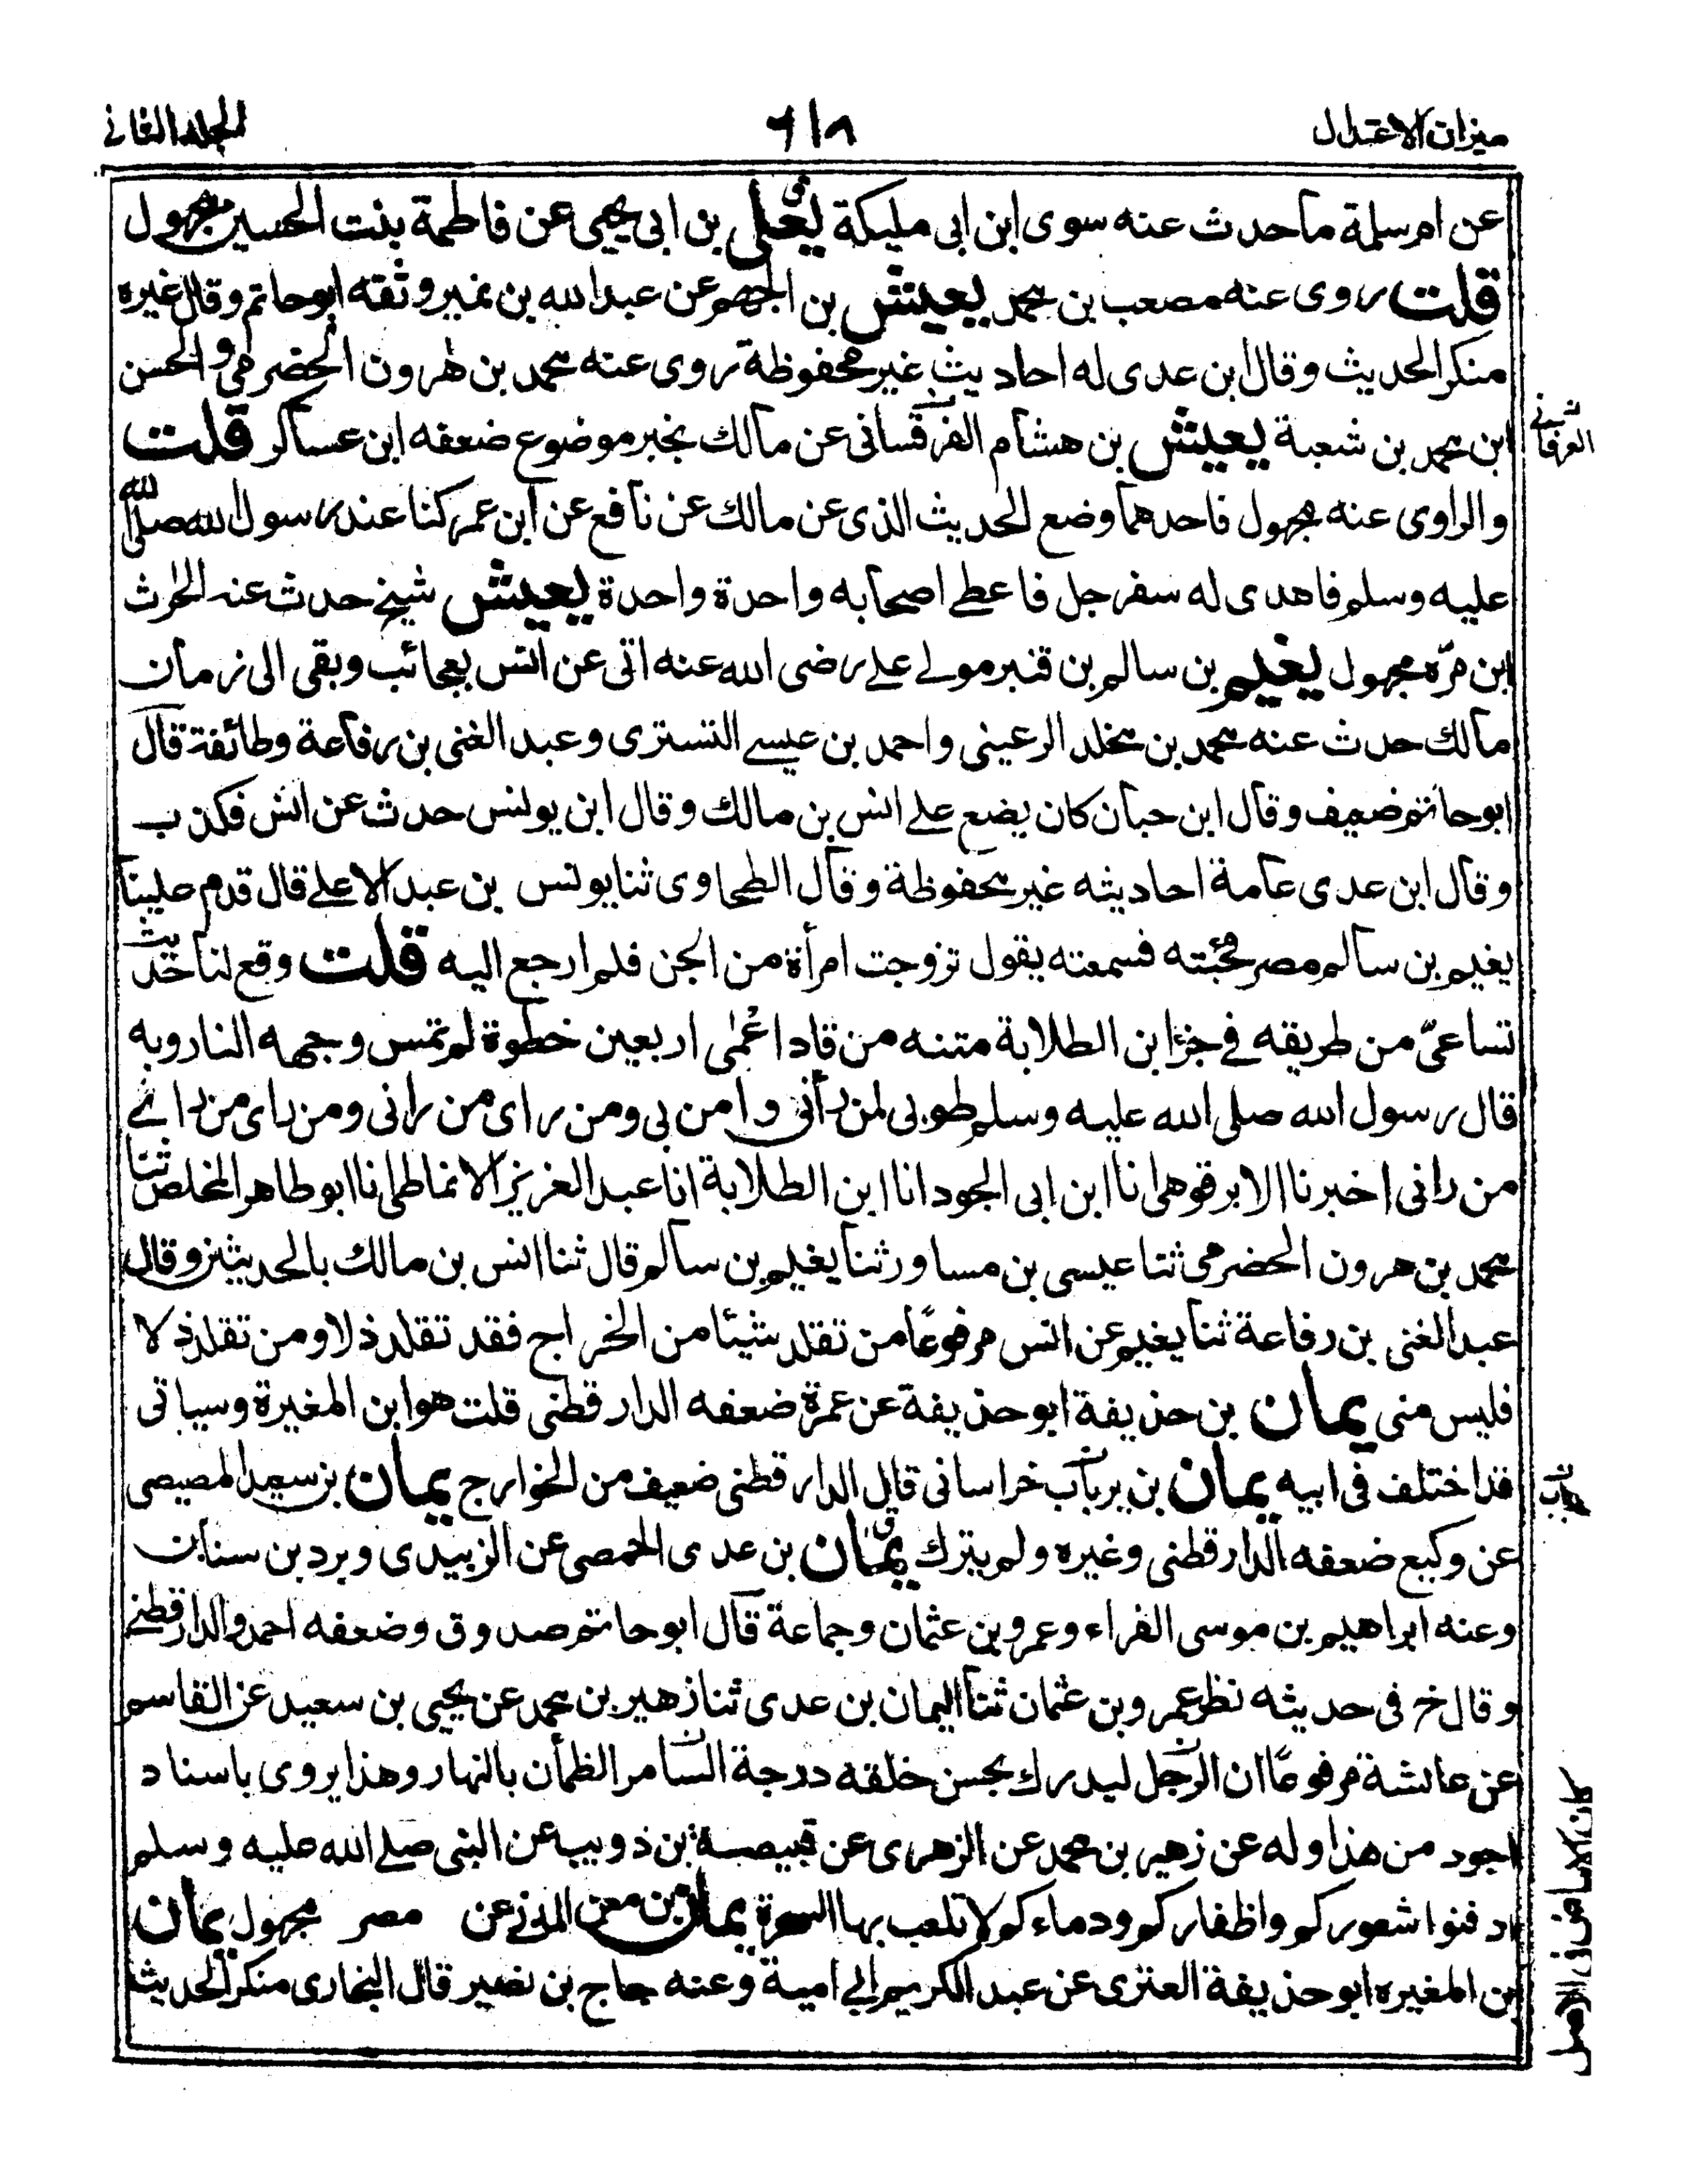 ميزان الاعتدال
٦١٨
الجلد الثانى
عن ام سلمة ما حدث عنه سوى ابن ابى مليكة يعلى بن ابى يحيى عن فاطمة بنت الحسين مجهول
قلت روى عنه مصعب بن محمد يعيش بن الجهم عن عبد الله بن نمير وثقه ابو حاتم وقال غيره
منكر الحديث وقال ابن عدى له احاديث غير محفوظة روى عنه محمد بن هرون الحضرمى والحسن
ابن محمد بن شعبة يعيش بن هشام القرقسانى عن مالك بخبر موضوع ضعفه ابن عساكر قلت
والراوى عنه مجهول فاحدهما وضع الحديث الذى عن مالك عن نافع عن ابن عمر كنا عند رسول الله صلى الله
عليه وسلم فاهدى له سفرجل فاعطى اصحابه واحدة واحدة يعيش شيخ حدث عنه الحرث
ابن مرّة مجهول يغنم بن سالم بن قنبر مولى على رضى الله عنه اتى عن انس بعجائب وبقى الى زمان
مالك حدث عنه محمد بن مخلد الرعينى واحمد بن عيسى التسترى وعبد الغنى بن رفاعة وطائفة قال
ابو حاتم ضعيف وقال ابن حبان كان يضع على انس بن مالك وقال ابن يونس حدث عن انس فكذب
وقال ابن عدى عامة احاديثه غير محفوظة وقال الطحاوى ثنا يونس بن عبد الاعلى قال قدم علينا
يغنم بن سالم مصر فجئته فسمعته يقول تزوجت امرأة من الجن فلم ارجع اليه قلت وقع لنا حديث
تساعىّ من طريقه فى جزء ابن الطلاية متنه من قاد اعمى اربعين خطوة لم تمس وجهه النار وبه
قال رسول الله صلى الله عليه وسلم طوبى لمن رأنى وامن بى ومن راى من رانى ومن راى من راى
من رانى اخبرنا الابرقوهى انا ابن ابى الجود انا ابن الطلاية انا عبد العزيز الانماطى انا ابو طاهر المخلص ثنا
محمد بن هرون الحضرمى ثنا عيسى بن مساور ثنا يغنم بن سالم قال ثنا انس بن مالك بالحديثين وقال
عبد الغنى بن رفاعة ثنا يغنم عن انس مرفوعًا من تقلد شيئا من الخراج فقد تقلد ذلا ومن تقلد ذلا
فليس منى يمان بن حذيفة ابو حذيفة عن عمرة ضعفه الدارقطنى قلت هو ابن المغيرة وسياتى
قد اختلف فى ابيه يمان بن رباب خراسانى قال الدارقطنى ضعيف من الخوارج يمان بن سعيد المصيصى
عن وكيع ضعفه الدارقطنى وغيره ولم يترك يمان بن عدى الحمصى عن الزبيدى وبرد بن سنان
وعنه ابراهيم بن موسى الفراء وعمرو بن عثمان وجماعة قال ابو حاتم صدوق وضعفه احمد والدارقطنى
وقال خ فى حديثه نظر عمرو بن عثمان ثنا اليمان بن عدى ثنا زهير بن محمد عن يحيى بن سعيد عن القاسم
عن عائشة مرفوعًا ان الرجل ليدرك بحسن خلقه درجة السامر الظمأن بالنهار وهذا يروى باسناد
اجود من هذا وله عن زهير بن محمد عن الزهرى عن قبيصة بن ذويب عن النبى صلى الله عليه وسلم
ادفنوا شعوركم واظفاركم ودماءكم لا تلعب بها السحرة يمان بن معن المدنى عن مصر مجهول يمان
بن المغيره ابو حذيفة العنزى عن عبد الكريم ابى امية وعنه حجاج بن نصير قال البخارى منكر الحديث
كان الاسامن فى الاصل